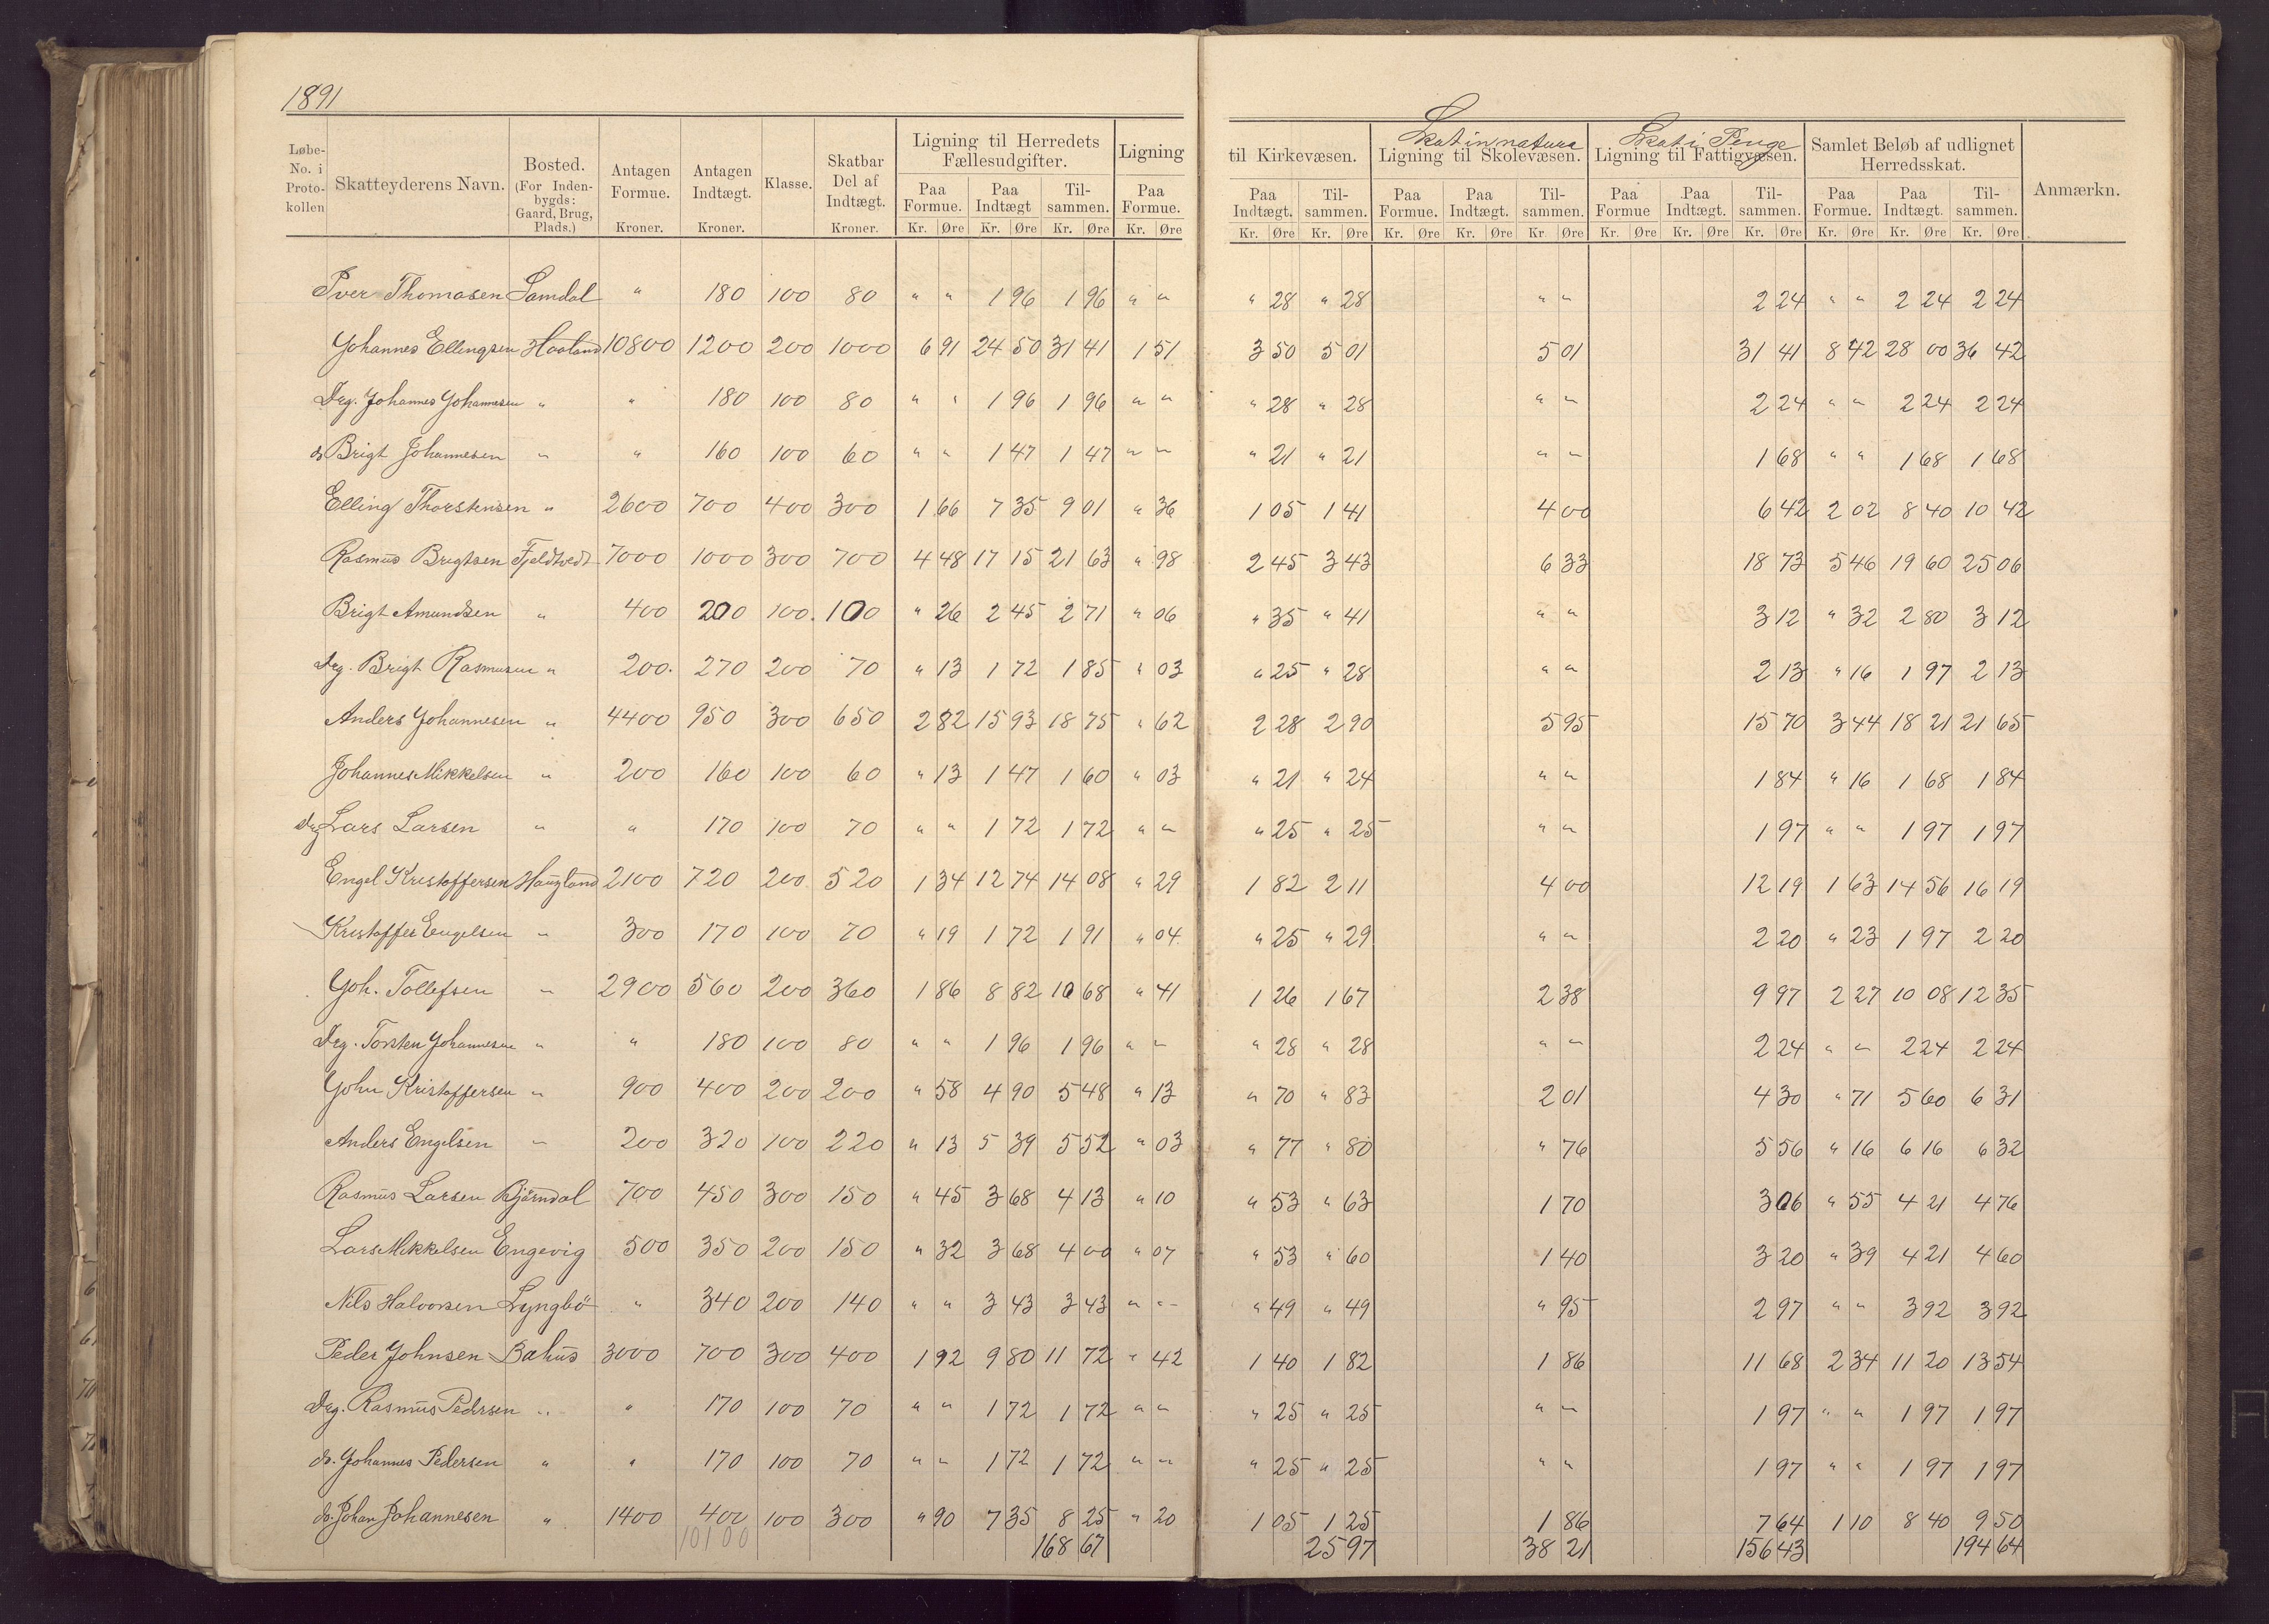 1891
Løbe-No. i Protokollen | Skatteyderens Navn. | Bosted. (For Indenbygds: Gaard, Brug, Plads.) | Antagen Formue. Kroner. | Antagen Indtægt. Kroner. | Klasse. | Skatbar Del af Indtægt. Kroner. | Ligning til Herredets Fællesudgifter. Paa Formue. Kr. Øre | Paa Indtægt Kr. Øre | Tilsammen. Kr. Øre | Ligning Paa Formue. Kr. Øre | til Kirkevæsen. Paa Indtægt. Kr. Øre | Tilsammen. Kr. Øre | Skat in natura Ligning til Skolevæsen. Paa Formue. Kr. Øre | Paa Indtægt. Kr. Øre | Tilsammen. Kr. Øre | Skat i Penge Ligning til Fattigvæsen. Paa Formue Kr. Øre | Paa Indtægt. Kr. Øre | Tilsammen. Kr. Øre | Samlet Beløb af udlignet Herredsskat. Paa Formue. Kr. Øre | Paa Indtægt. Kr. Øre | Tilsammen. Kr. Øre | Anmærkn.
Iver Thomasen Samdal " 180 100 80 " " 1 96 1 96 " " " 28 " 28 " " 2 24 " " 2 24 2 24
Johannes Ellingsen Haaland 10800 1200 200 1000 6 91 24 50 31 41 1 51 3 50 5 01 5 01 31 41 8 42 28 00 36 42
Drg. Johannes Johannesen " " 180 100 80 " " 1 96 1 96 " " " 28 " 28 " " 2 24 " " 2 24 2 24
do Brigt Johannesen " " 160 100 60 " " 1 47 1 47 " " " 21 " 21 " " 1 68 " " 1 68 1 68
Elling Thorstensen " 2600 700 400 300 1 66 7 35 9 01 " 36 1 05 1 41 4 00 6 42 2 02 8 40 10 42
Rasmus Brigtsen Fjeldtvedt 7000 1000 300 700 4 48 17 15 21 63 " 98 2 45 3 43 6 33 18 73 5 46 19 60 25 06
Brigt Amundsen " 400 200 100. 100 " 26 2 45 2 71 " 06 " 35 " 41 " " 3 12 " 32 2 80 3 12
Drg. Brigt Rasmusen " 200. 270 200 70 " 13 1 72 1 85 " 03 " 25 " 28 " " 2 13 " 16 1 97 2 13
Anders Johannesen " 4400 950 300 650 2 82 15 93 18 75 " 62 2 28 2 90 5 95 15 70 3 44 18 21 21 65
Johannes Mikkelsen " 200 160 100 60 " 13 1 47 1 60 " 03 " 21 " 24 " " 1 84 " 16 1 68 1 84
Drg Lars Larsen " " 170 100 70 " " 1 72 1 72 " " " 25 " 25 " " 1 97 " " 1 97 1 97
Engel Kristoffersen Haugland 2100 720 200 520 1 34 12 74 14 08 " 29 1 82 2 11 4 00 12 19 1 63 14 56 16 19
Kristoffer Engelsen " 300 170 100 70 " 19 1 72 1 91 " 04 " 25 " 29 " " 2 20 " 23 1 97 2 20
Joh. Tollefsen " 2900 560 200 360 1 86 8 82 10 68 " 41 1 26 1 67 2 38 9 97 2 27 10 08 12 35
Drg. Torsten Johannesen " " 180 100 80 " " 1 96 1 96 " " " 28 " 28 " " 2 24 " " 2 24 2 24
John Kristoffersen " 900 400 200 200 " 58 4 90 5 48 " 13 " 70 " 83 2 01 4 30 " 71 5 60 6 31
Anders Engelsen " 200 320 100 220 " 13 5 39 5 52 " 03 " 77 " 80 " 76 5 56 " 16 6 16 6 32
Rasmus Larsen Bjørndal 700 450 300 150 " 45 3 68 4 13 " 10 " 53 " 63 1 70 3 06 " 55 4 21 4 76
Lars Mikkelsen Engevig 500 350 200 150 " 32 3 68 4 00 " 07 " 53 " 60 1 40 3 20 " 39 4 21 4 60
Nils Halvorsen Lyngbö " 340 200 140 " " 3 43 3 43 " " " 49 " 49 " 95 2 97 " " 3 92 3 92
Peder Johnsen Bahus 3000 700 300 400 1 92 9 80 11 72 " 42 1 40 1 82 1 86 11 68 2 34 11 20 13 54
Drg. Rasmus Pedersen " " 170 100 70 " " 1 72 1 72 " " " 25 " 25 " " 1 97 " " 1 97 1 97
do. Johannes Pedersen " " 170 100 70 " " 1 72 1 72 " " " 25 " 25 " " 1 97 " " 1 97 1 97
do. Johan Johannesen " 1400 400 100 300 " 90 7 35 8 25 " 20 1 05 1 25 1 86 7 64 1 10 8 40 9 50
10100 168 67 25 97 38 21 156 43 194 64